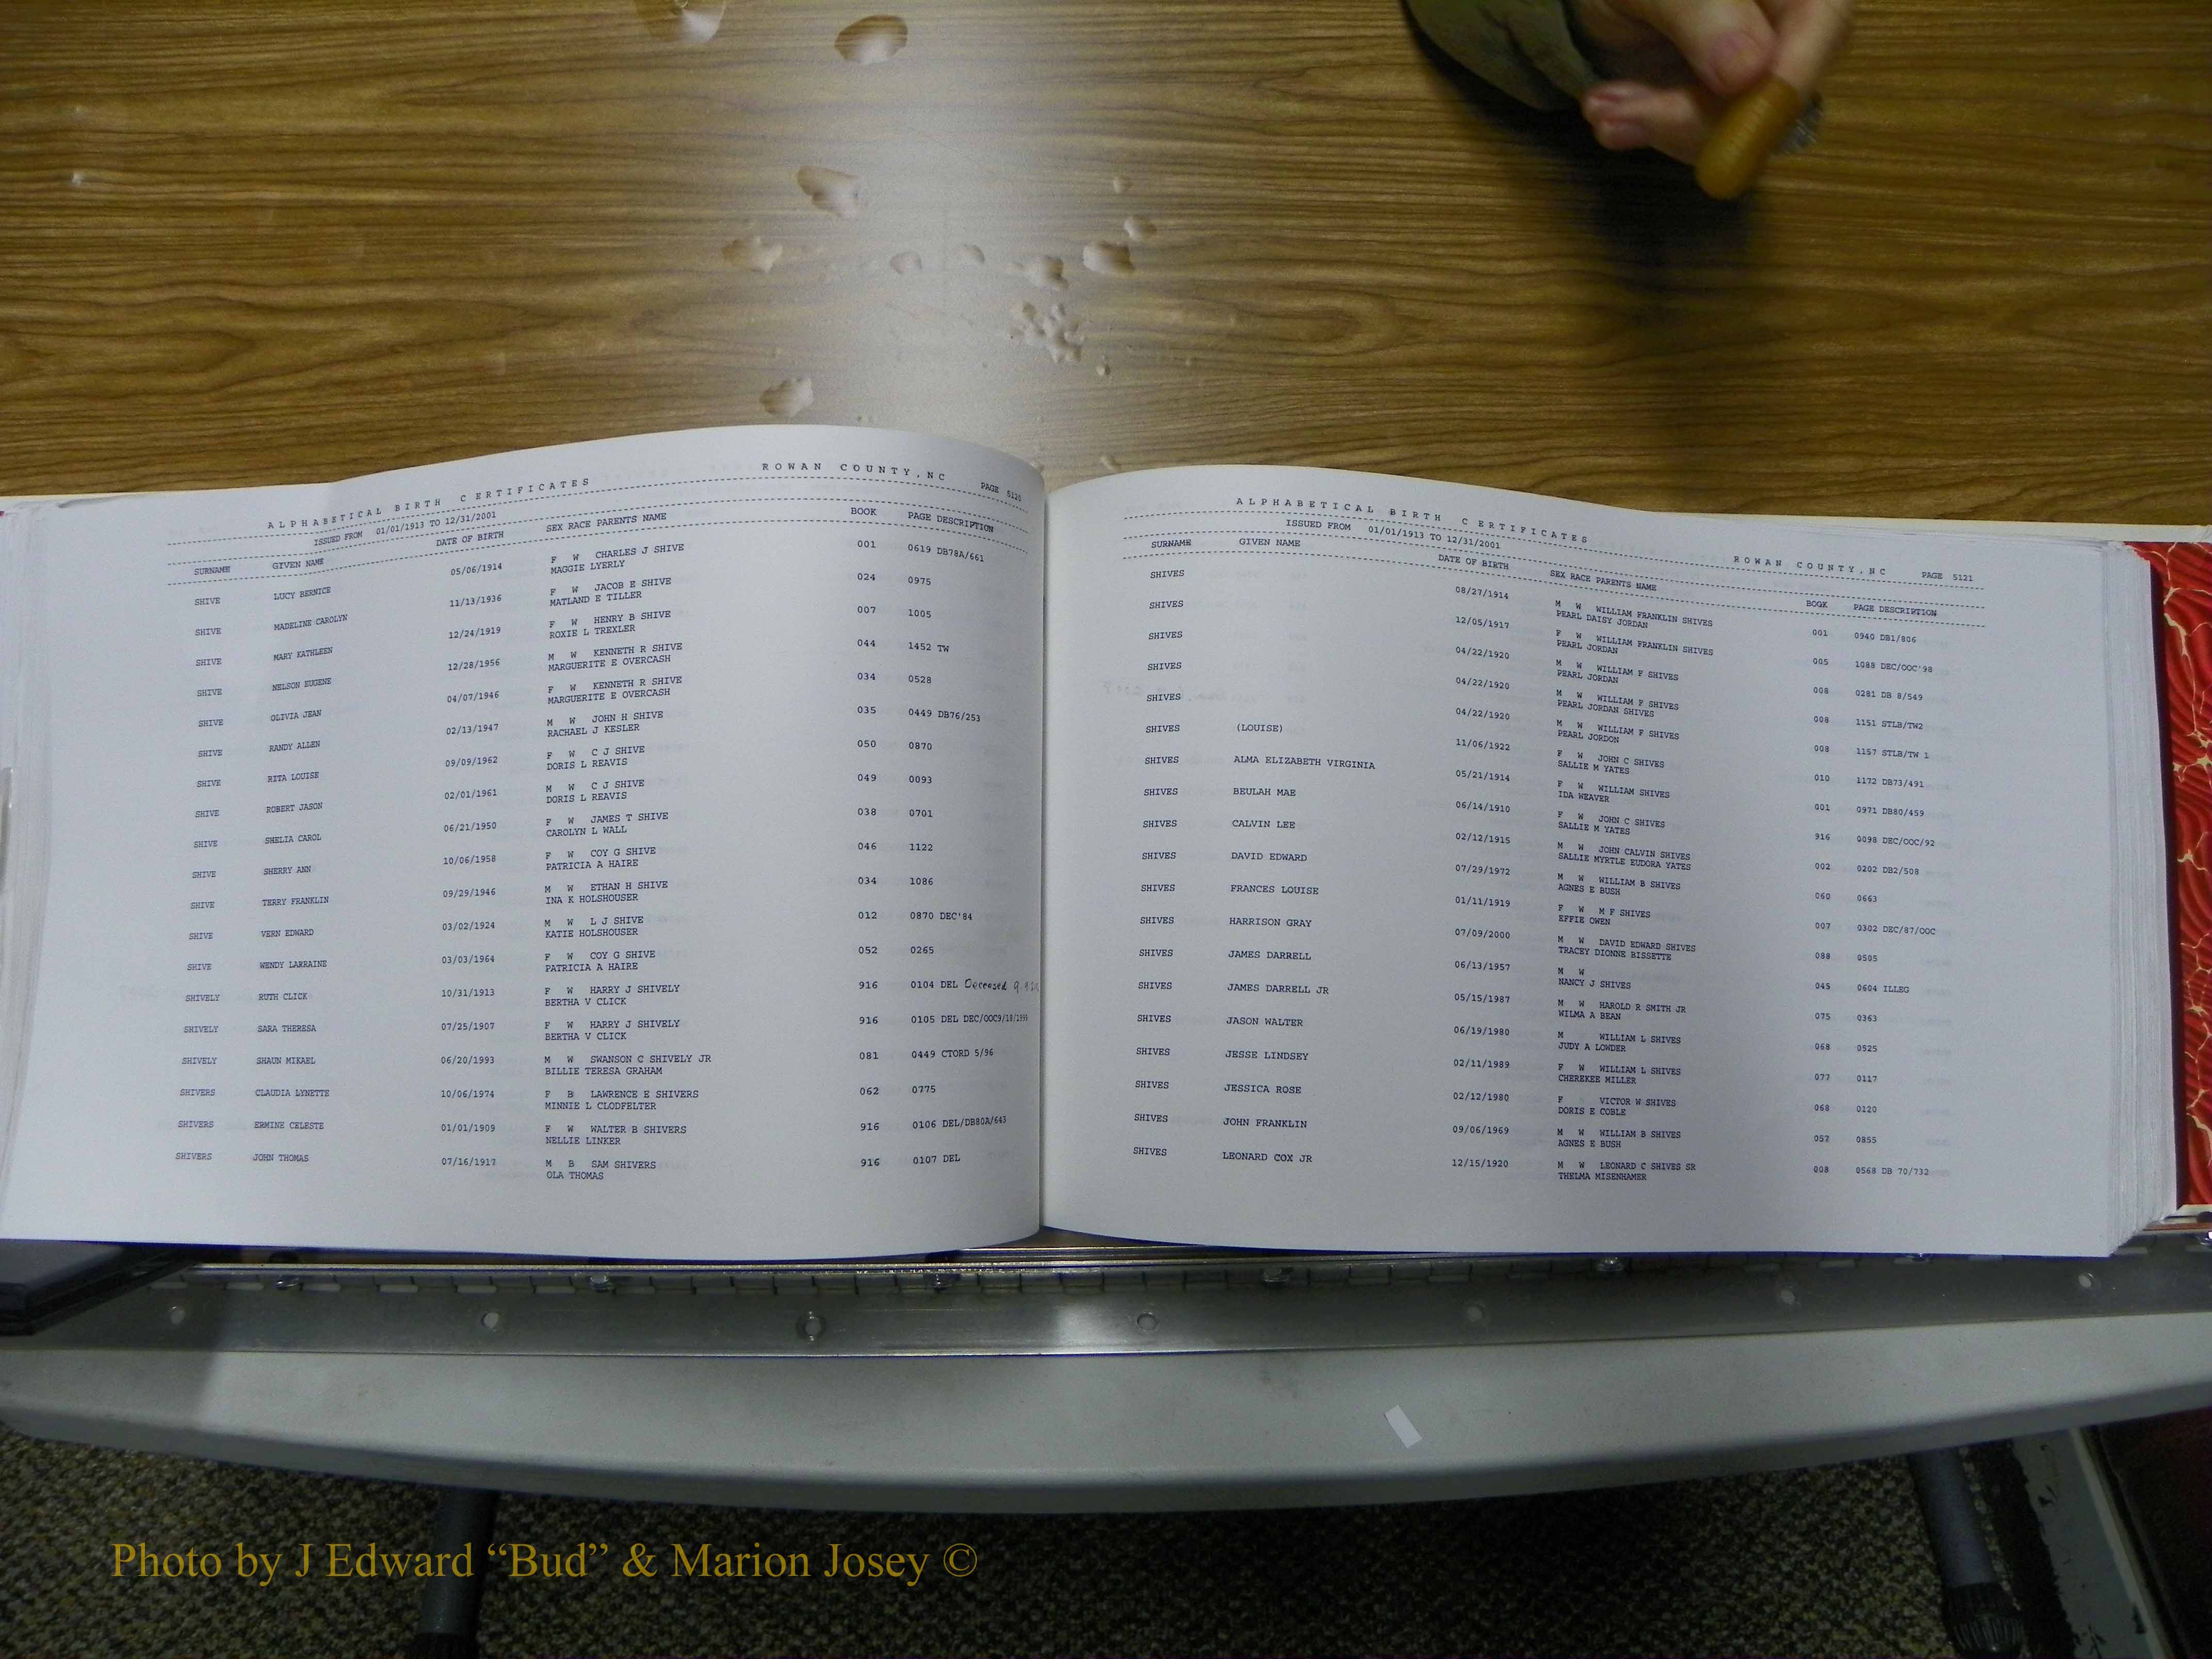 ALPHABETICAL BIRTH CERTIFICATES ROWAN COUNTY, NC PAGE 5120
ISSUED FROM 01/01/1913 TO 12/31/2001
SURNAME GIVEN NAME DATE OF BIRTH SEX RACE PARENTS NAME BOOK PAGE DESCRIPTION
SHIVE LUCY BERNICE 05/06/1914 F W CHARLES J SHIVE 001 0619 DB78A/661
MAGGIE LYERLY
SHIVE MADELINE CAROLYN 11/13/1936 F W JACOB E SHIVE 024 0975
MATLAND E TILLER
SHIVE MARY KATHLEEN 12/24/1919 F W HENRY B SHIVE 007 1005
ROXIE L TREXLER
SHIVE NELSON EUGENE 12/28/1956 M W KENNETH R SHIVE 044 1452 TW
MARGUERITE E OVERCASH
SHIVE OLIVIA JEAN 04/07/1946 F W KENNETH R SHIVE 034 0528
MARGUERITE E OVERCASH
SHIVE RANDY ALLEN 02/13/1947 M W JOHN H SHIVE 035 0449 DB76/253
RACHAEL J KESLER
SHIVE RITA LOUISE 09/09/1962 F W C J SHIVE 050 0870
DORIS L REAVIS
SHIVE ROBERT JASON 02/01/1961 M W C J SHIVE 049 0093
DORIS L REAVIS
SHIVE SHELIA CAROL 06/21/1950 F W JAMES T SHIVE 038 0701
CAROLYN L WALL
SHIVE SHERRY ANN 10/06/1958 F W COY G SHIVE 046 1122
PATRICIA A HAIRE
SHIVE TERRY FRANKLIN 09/29/1946 M W ETHAN H SHIVE 034 1086
INA K HOLSHOUSER
SHIVE VERN EDWARD 03/02/1924 M W L J SHIVE 012 0870 DEC'84
KATIE HOLSHOUSER
SHIVE WENDY LARRAINE 03/03/1964 F W COY G SHIVE 052 0265
PATRICIA A HAIRE
SHIVELY RUTH CLICK 10/31/1913 F W HARRY J SHIVELY 916 0104 DEL Deceased
BERTHA V CLICK
SHIVELY SARA THERESA 07/25/1907 F W HARRY J SHIVELY 916 0105 DEL DEC/OOC9/18/1999
BERTHA V CLICK
SHIVELY SHAUN MIKAEL 06/20/1993 M W SWANSON C SHIVELY JR 081 0449 CTORD 5/96
BILLIE TERESA GRAHAM
SHIVERS CLAUDIA LYNETTE 10/06/1974 F B LAWRENCE E SHIVERS 062 0775
MINNIE L CLODFELTER
SHIVERS ERMINE CELESTE 01/01/1909 F W WALTER B SHIVERS 916 0106 DEL/DB80A/643
NELLIE LINKER
SHIVERS JOHN THOMAS 07/16/1917 M B SAM SHIVERS 916 0107 DEL
OLA THOMAS
ALPHABETICAL BIRTH CERTIFICATES ROWAN COUNTY, NC PAGE 5121
ISSUED FROM 01/01/1913 TO 12/31/2001
SURNAME GIVEN NAME DATE OF BIRTH SEX RACE PARENTS NAME BOOK PAGE DESCRIPTION
SHIVES 08/27/1914 M W WILLIAM FRANKLIN SHIVES 001 0940 DB1/806
PEARL DAISY JORDAN
SHIVES 12/05/1917 F W WILLIAM FRANKLIN SHIVES 005 1088 DEC/OOC'98
PEARL JORDAN
SHIVES 04/22/1920 M W WILLIAM F SHIVES 008 0281 DB 8/549
PEARL JORDAN
SHIVES 04/22/1920 M W WILLIAM F SHIVES 008 1151 STLB/TW2
PEARL JORDAN SHIVES
SHIVES 04/22/1920 M W WILLIAM F SHIVES 008 1157 STLB/TW 1
PEARL JORDON
SHIVES (LOUISE) 11/06/1922 F W JOHN C SHIVES 010 1172 DB73/491
SALLIE M YATES
SHIVES ALMA ELIZABETH VIRGINIA 05/21/1914 F W WILLIAM SHIVES 001 0971 DB80/459
IDA WEAVER
SHIVES BEULAH MAE 06/14/1910 F W JOHN C SHIVES 916 0098 DEC/OOC/92
SALLIE M YATES
SHIVES CALVIN LEE 02/12/1915 M W JOHN CALVIN SHIVES 002 0202 DB2/508
SALLIE MYRTLE EUDORA YATES
SHIVES DAVID EDWARD 07/29/1972 M W WILLIAM B SHIVES 060 0663
AGNES E BUSH
SHIVES FRANCES LOUISE 01/11/1919 F W M F SHIVES 007 0302 DEC/87/OOC
EFFIE OWEN
SHIVES HARRISON GRAY 07/09/2000 M W DAVID EDWARD SHIVES 088 0505
TRACEY DIONNE BISSETTE
SHIVES JAMES DARRELL 06/13/1957 M W 045 0604 ILLEG
NANCY J SHIVES
SHIVES JAMES DARRELL JR 05/15/1987 M W HAROLD R SMITH JR 075 0363
WILMA A BEAN
SHIVES JASON WALTER 06/19/1980 M WILLIAM L SHIVES 068 0525
JUDY A LOWDER
SHIVES JESSE LINDSEY 02/11/1989 F W WILLIAM L SHIVES 077 0117
CHEREKEE MILLER
SHIVES JESSICA ROSE 02/12/1980 F VICTOR W SHIVES 068 0120
DORIS E COBLE
SHIVES JOHN FRANKLIN 09/06/1969 M W WILLIAM B SHIVES 057 0855
AGNES E BUSH
SHIVES LEONARD COX JR 12/15/1920 M W LEONARD C SHIVES SR 008 0568 DB 70/732
THELMA MISENHAMER
Photo by J Edward “Bud” & Marion Josey ©